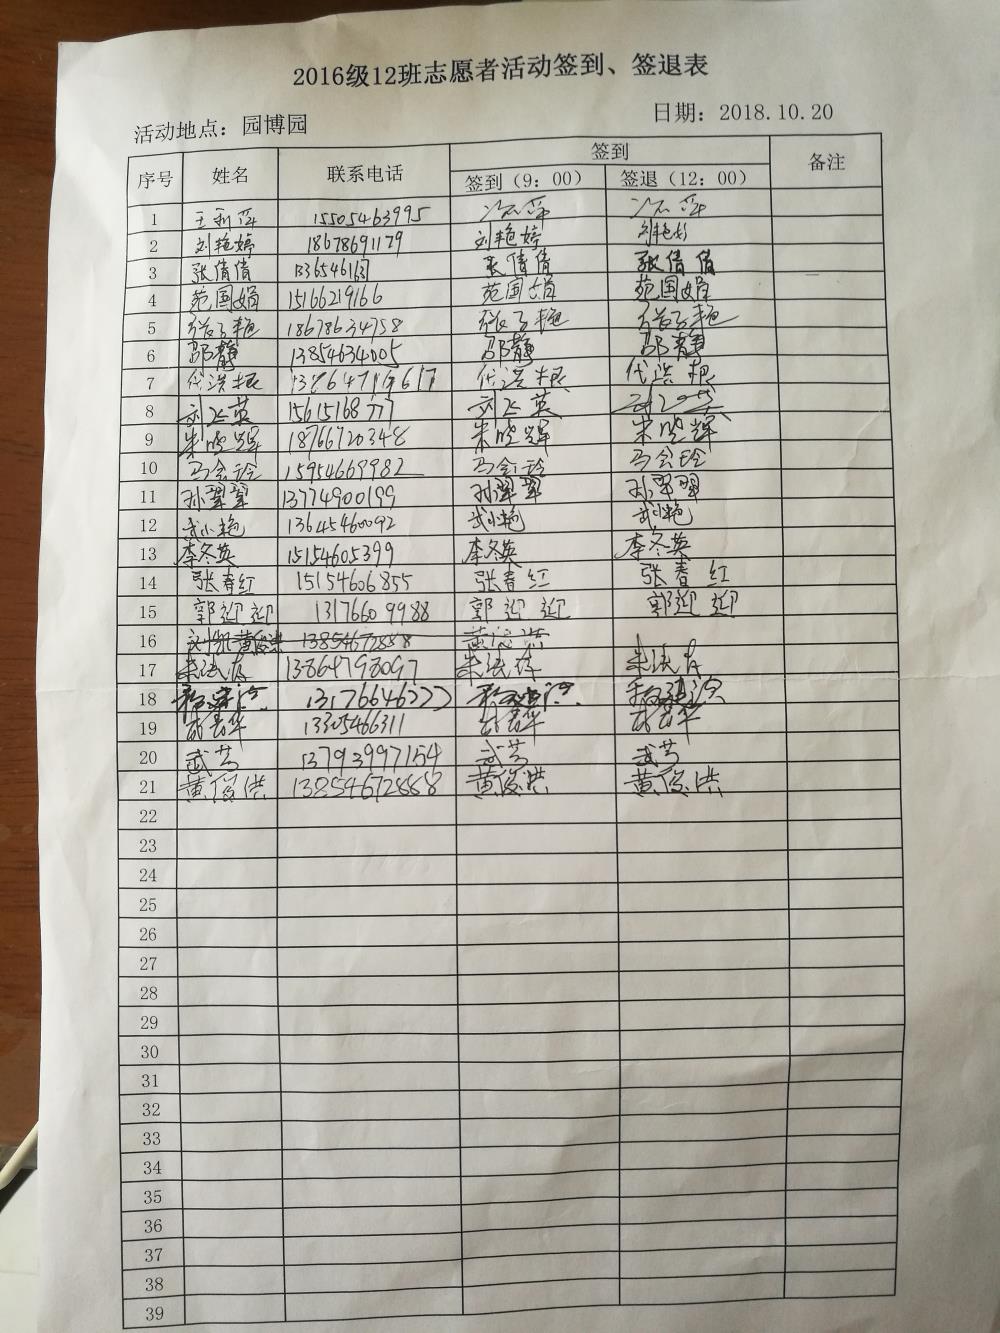 2016级12班志愿者活动签到、签退表
活动地点：园博园 日期：2018.10.20
序号 姓名 联系电话 签到 备注
签到（9：00） 签退（12：00）
1 15505463995
2 刘艳婷 18678691179 刘艳婷 刘艳婷
3 张倩倩 张倩倩 张倩倩
4 范国娟 15166219166 范国娟 范国娟
5 18678634758
6 邵静 13854634005 邵静 邵静
7 代洪根 代洪根 代洪根
8 刘飞英 15615168777 刘飞英
9 朱晓辉 18766720348 朱晓辉 朱晓辉
10 马会玲 15954669982 马会玲 马会玲
11 孙翠翠 13774900199 孙翠翠 孙翠翠
12 武小艳 13645460092 武小艳 武小艳
13 李冬英 15154605399 李冬英 李冬英
14 张春红 15154606855 张春红 张春红
15 郭迎迎 13176609988 郭迎迎 郭迎迎
16 黄俊洪 13854672888 黄俊洪
17 13864798097
18
19 13305466311
20 武芳 13793997154 武芳 武芳
21 黄俊洪 13854672888 黄俊洪 黄俊洪
22
23
24
25
26
27
28
29
30
31
32
33
34
35
36
37
38
39